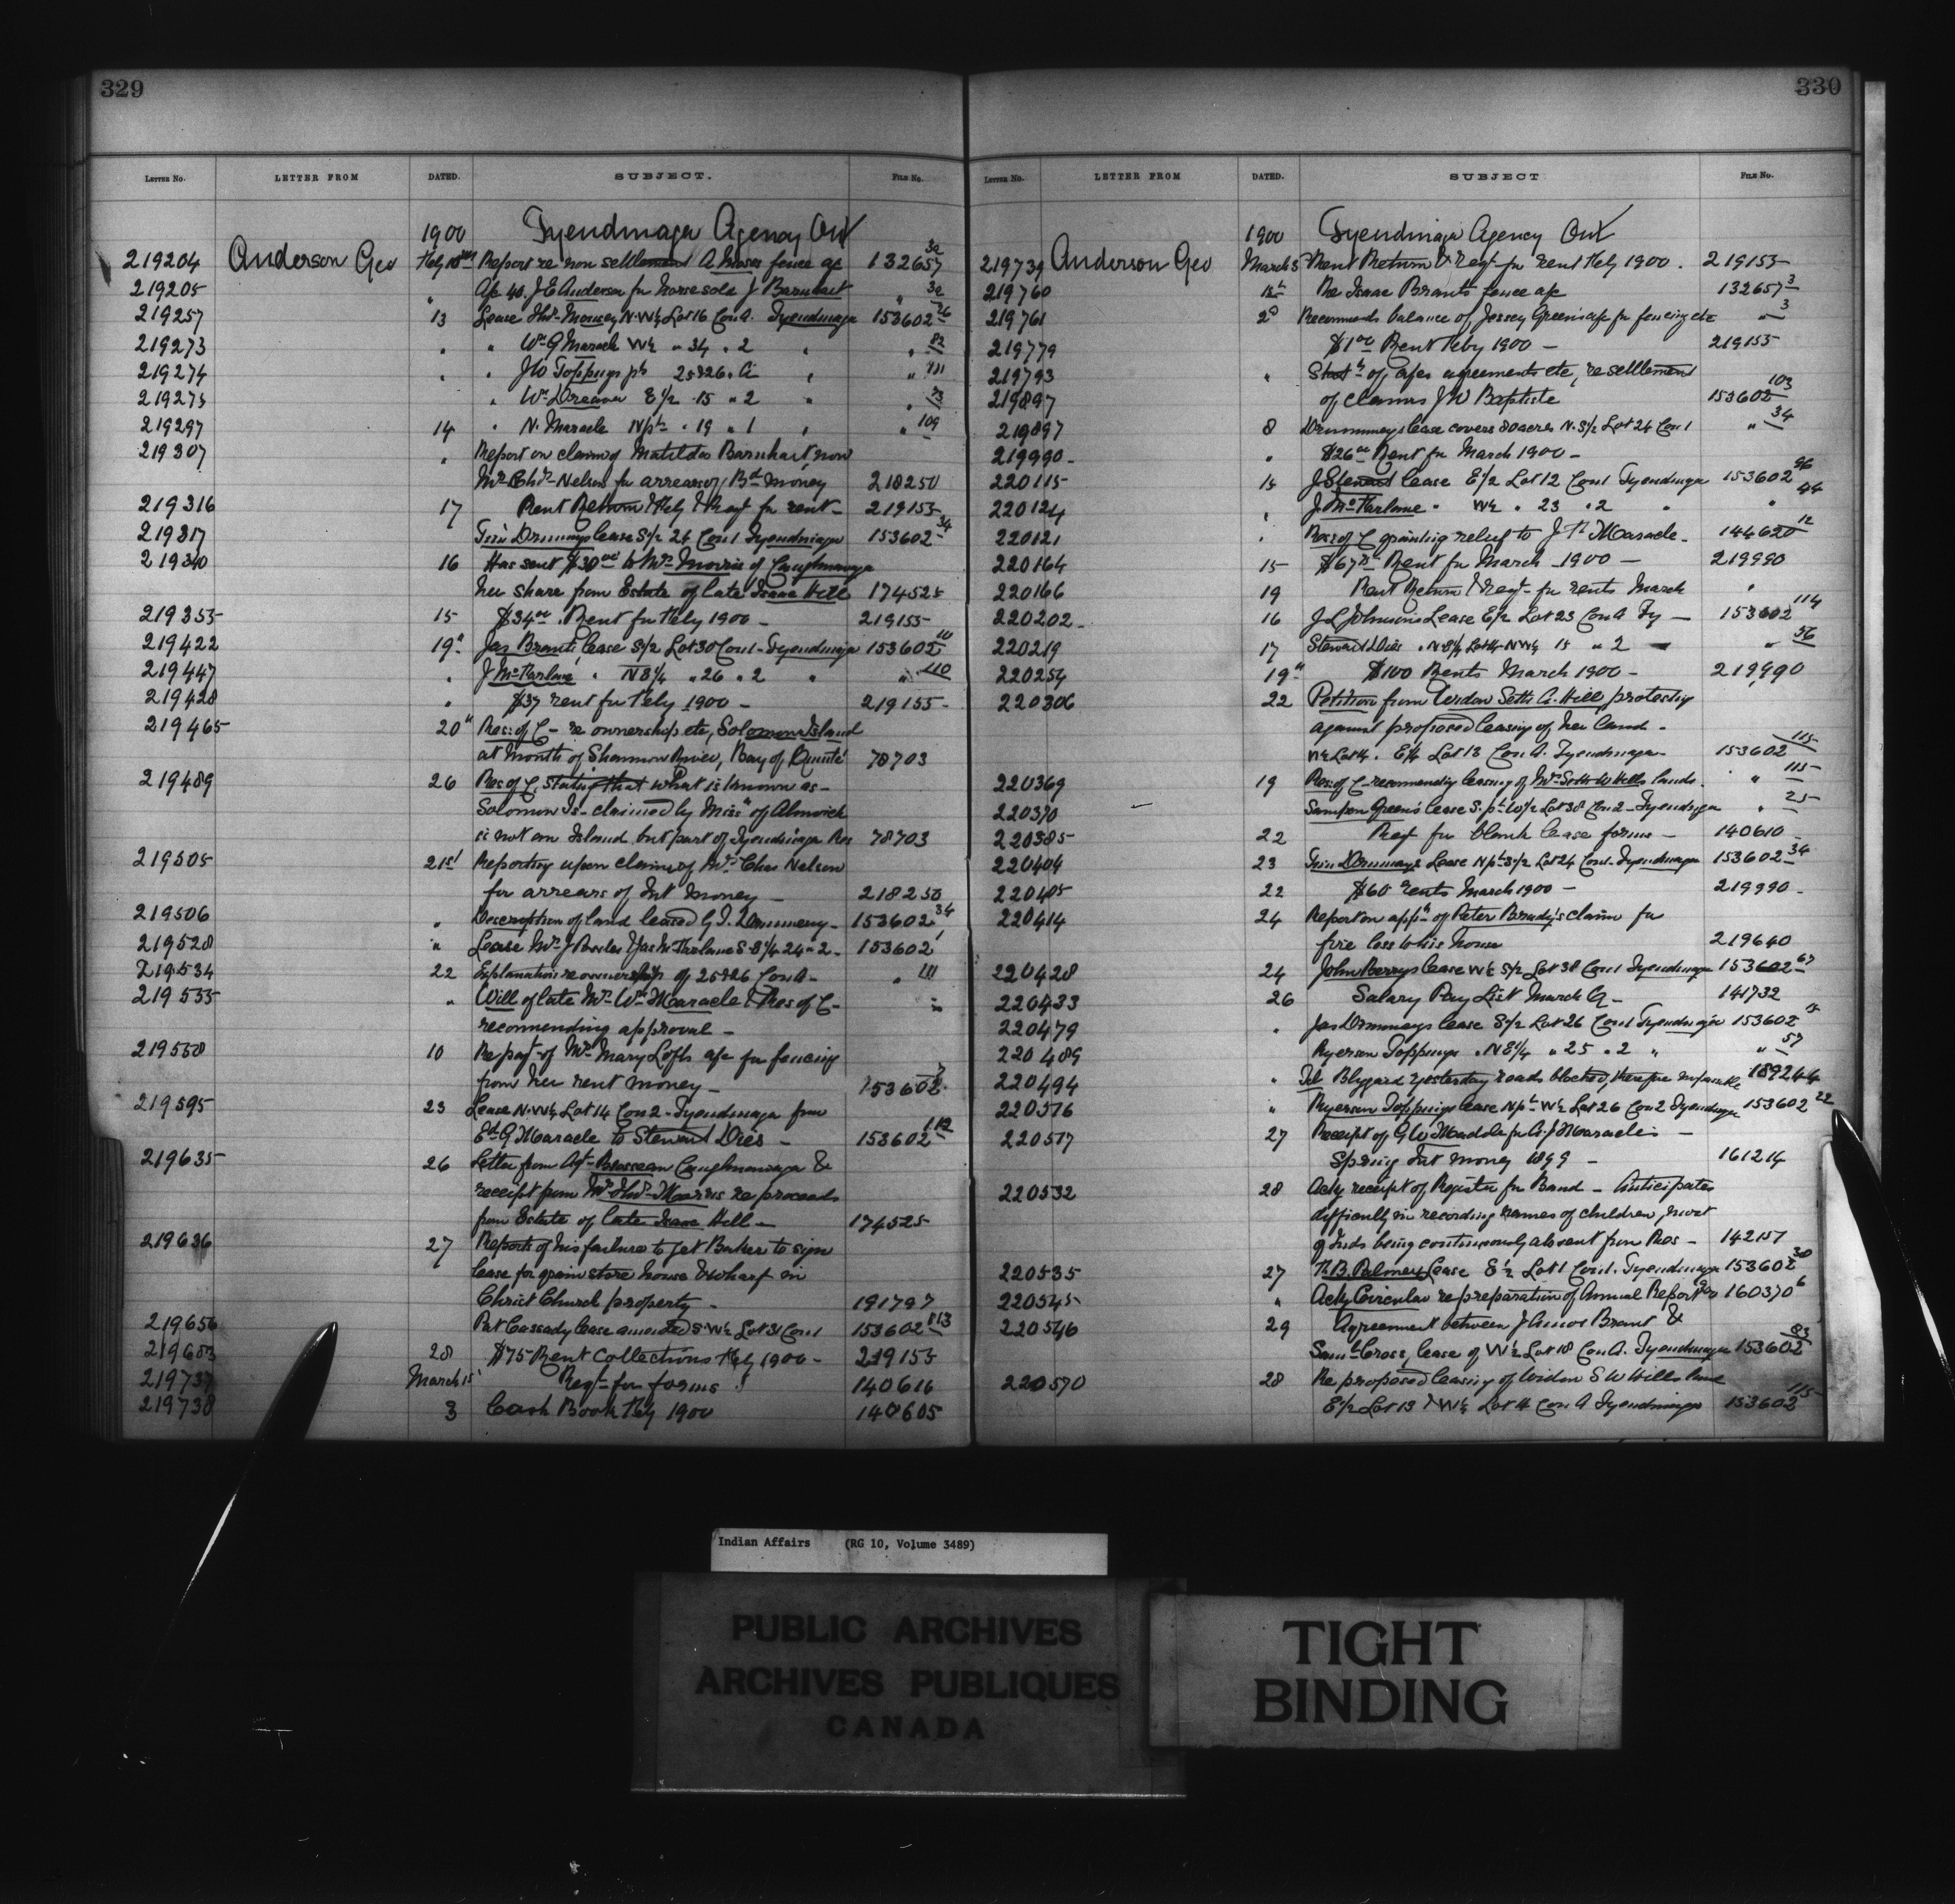 329
LETTER NO. LETTER FROM DATED. SUBJECT. FILE NO.
1900 Tyendinaga Agency Ont
219204 Anderson Geo Feby Report re non settlement A Moses fence a/c 132657
219205 " J E Anderson for horse sold J Barnhart "
219257 13 Lease N.W¼ Lot 16 Con A. Tyendinaga 153602
219273 " " Wm G Maracle W½ " 34 " 2 " " 82
219274 " " Jno Toppings pt 25&26 . A " " 111
219275 " Wm E½ 15 " 2 " " 73
219297 14 " N. Maracle N pt " 19 " 1 " " 109
219307 " Report on claim of Matilda Barnhart, now
Mrs Chas Nelson for arrears of money 218250
219316 17 Rent Return Feby & Reqt for rent 219155
219317 lease S½ 24 Con 1 Tyendinaga 153602 34
219340 16 Has sent $30.00 to Mrs Morris of Caughnawaga
her share from Estate of late Isaac Hill 174525
219355 15 $34.00 Rent for Feby 1900 - 219155
219422 19 " Jas Brants lease S½ Lot 30 Con 1 Tyendinaga 153602
219447 " J McFarlane " N E¼ " 26 " 2 " " 110
219428 " $37 rent for Feby 1900 - 219155
219465 20 " Res: of C - re ownership etc, Solomon Island
at Mouth of Shannon River, Bay of Quinté 78703
219489 26 Res of C. stating that what is known as
Solomon Is - claimed by Miss: of Alnwick
is not an Island but part of Tyendinaga Res 78703
219505 21st Reporting upon claim of Mrs Chas Nelson
for arrears of Int money 218250
219506 " Description of land leased G. I. Drummery - 153602 34
219528 " Lease Mrs J & Jas McFarlane S E¼ 24 - 2 - 153602
219534 22 Explanation re ownership of 25&26 Con A - " 111
219535 " Will of late Mrs Wm Maracle & Res of C -
recommending approval -
219558 10 Re payt of Mrs Mary Lofts a/c for fencing
from her rent money - 153602
219595 23 Lease N.W¼ Lot 14 Con 2 - Tyendinaga from
Ed G Maracle to Stewart Dies - 153602 112
219635 26 Letter from Agt Brosseau Caughnawaga &
receipt from Mrs Morris re proceeds
from Estate of late Isaac Hill - 174525
219636 27 Reports of his failure to get Baker to sign
lease for grain store house & wharf on
Christ Church property - 191797
219656 Pat Cassady lease amended S W¼ Lot 31 Con 1 153602 113
219683 28 $75 Rent collections Feby 1900 - 219155
219737 March 1st Reqt for forms 140616
219738 3 Cash Book Feby 1900 140605
330
LETTER NO. LETTER FROM DATED. SUBJECT FILE NO.
1900 Tyendinaga Agency Ont
219739 Anderson Geo March 5 Rent Return & Reqt for rent Feby 1900. 219155
219760 Re Isaac Brants fence a/c 132657 3
219761 Recommends balance of Jessey Greens a/c for fencing etc " 3
219779 $1.00 Rent Feby 1900 - 219155
219793 " of a/cs agreements etc, re settlement
219897 of claims J W Baptiste 153602 103
219897 8 Drummeys lease covers 80 acres N. S½ Lot 24 Con 1 " 34
219990 - " $26.00 Rent for March 1900 -
220115 15 J Stewart lease E½ Lot 12 Con 1 Tyendinaga 153602 96
220124 " J McFarlane " W½ " 23 " 2 " " 44
220121 " Res: of C granting relief to J Maracle - 144620 12
220164 15 $67 Rent for March 1900 - 219990
220166 19 Rent Return & reqt for rents March "
220202 - 16 J L Johnsons Lease E½ Lot 23 Con A Ty - 153602 114
220219 17 Stewart Dies " N E¼ Lot 14 N W¼ 15 " 2 " 56
220254 19 " $100 Rents March 1900 - 219990
220306 22 Petition from Widow Seth W. Hill protesting
against proposed leasing of her land -
W½ Lot 14. E½ Lot 13 Con A. Tyendinaga 153602 115
220369 19 Res: of C - recommending leasing of Mrs Seth W Hills lands. " 115
220370 Sampson Green's lease S. pt W½ Lot 38 Con 2 - Tyendinaga " 25
220385 22 Reqt for blank lease forms - 140610
220404 23 Lease N pt S½ Lot 24 Con 1. Tyendinaga 153602 34
220405 22 $60 rents March 1900 - 219990 -
220414 24 Report on appn of Peter Brady's claim for
fire loss to his house 219640
220428 24 John Berrys lease W½ S½ Lot 38 Con 1 Tyendinaga 153602 67
220433 26 Salary Pay List March Q - 141732
220479 " Jas Drummeys lease S½ Lot 26 Con 1 Tyendinaga 153602
220489 Ryerson Toppings " N E¼ " 25 " 2 " " 57
220494 " Tel Blizzard yesterday roads blocked, therefore 189244
220516 " Ryerson Toppings lease N pt W½ Lot 26 Con 2 Tyendinaga 153602 22
220517 27 Receipt of G W for A. J Maracle's -
Spring Int money 1899 - 161214
220532 28 Ackg receipt of Register for Band - Anticipates
difficulty in recording names of children, most
of Inds being continuously absent from Res - 142157
220535 27 lease E½ Lot 1 Con 1. Tyendinaga 153602 30
220545 " Ackg Circular re preparation of Annual Report 1900 160370 6
220546 29 Agreement between J Amos Brant &
Saml Cross, lease of W½ Lot 18 Con A. Tyendinaga 153602 83
220570 28 Re proposed leasing of Widow S W Hills land
E½ Lot 13 & W½ Lot 14 Con A Tyendinaga 153602 115
Indian Affairs (RG 10, Volume 3489)
PUBLIC ARCHIVES
ARCHIVES PUBLIQUES
CANADA
TIGHT
BINDING